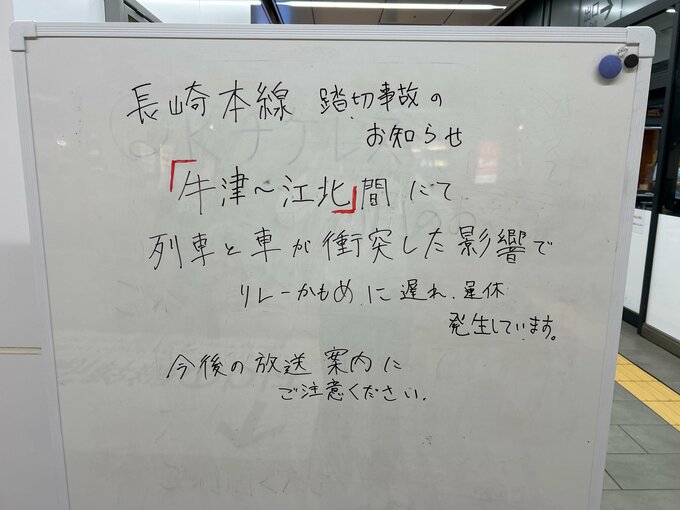 長崎本線 踏切事故の
お知らせ
「牛津～江北」間にて
列車と車が衝突した影響で
リレーかもめに遅れ、運休
発生しています。
今後の放送案内に
ご注意ください。